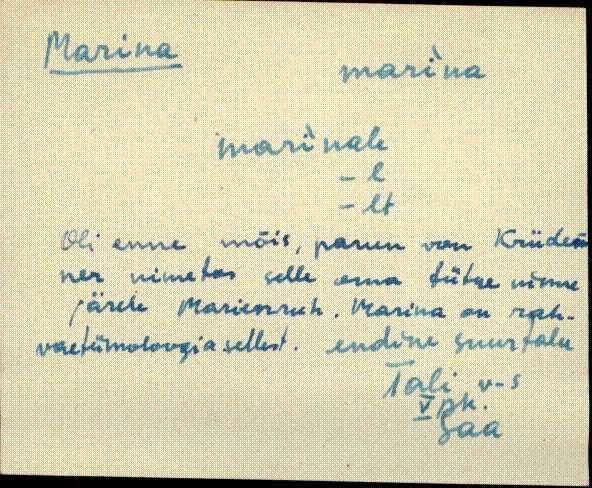 Marina
mari`na
mari`nale
- l
- lt
Oli enne mõis, parun von Krüde-
ner nimetas selle oma tütre nime
järele Marienruh. Marina on rah-
vaetümoloogia sellest. endine suurtalu
Tali v-s
V pk.
Saa